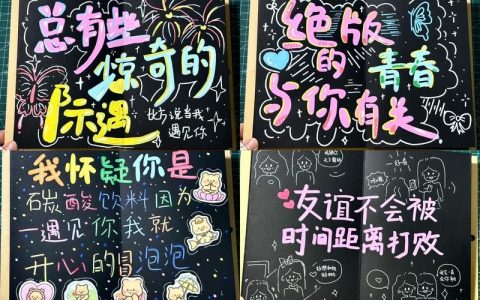 总有些
惊奇的
际遇
比方说当我
遇见你
绝版
的青春
与你有关
我怀疑你是
碳酸饮料因为
一遇见你我就
开心的冒泡泡
友谊不会被
时间距离打败